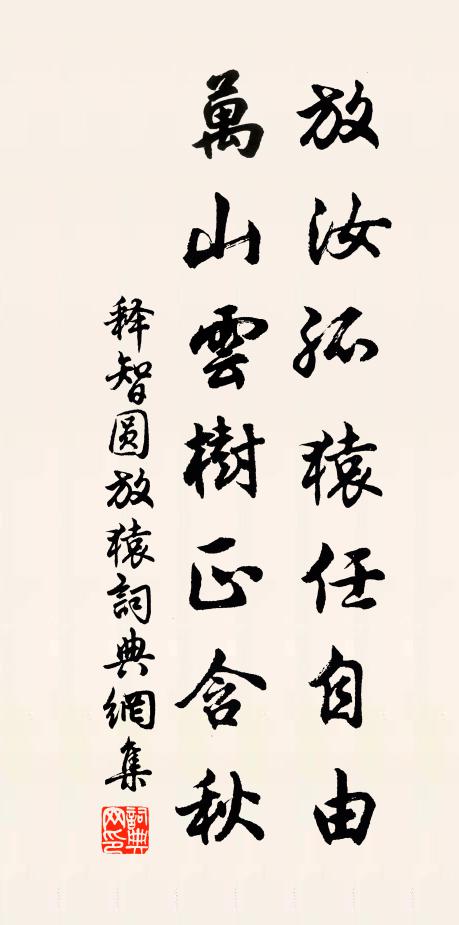 放汝孤猿任自由
萬山雲樹正含秋
释智圆放猿詞典網集
詞典網印